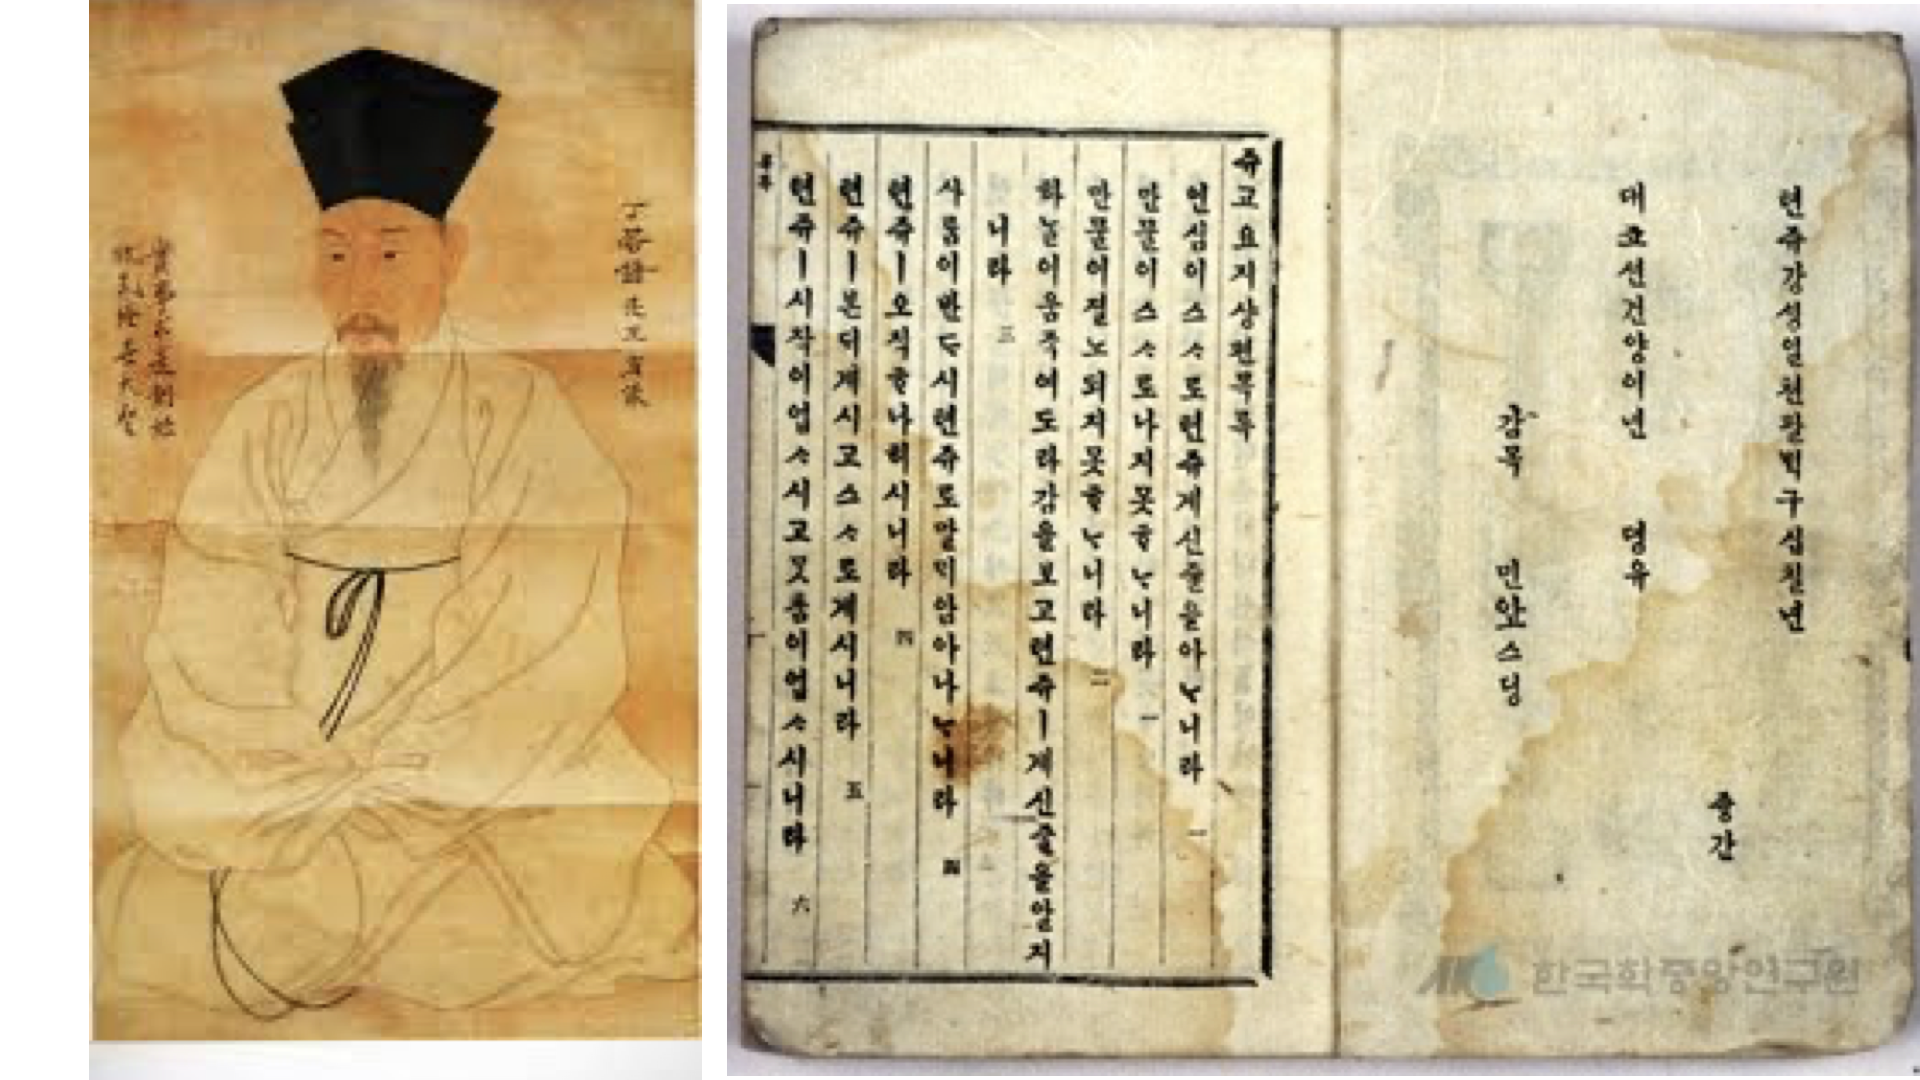 텬쥬강성일쳔팔ᄇᆡᆨ구십칠년
대죠선건양이년 뎡유
감목 민
스딩
즁간
쥬교요지샹편목록
인심이스ᄉᆞ로텬쥬계신줄을아ᄂᆞ니라 一
만물이스ᄉᆞ로나지못ᄒᆞᄂᆞ니라 一
만물이졀노되지못ᄒᆞᄂᆞ니라 二
하ᄂᆞᆯ이움ᄌᆞᆨ여도라감을보고텬쥬ㅣ계신줄을알지
니라 三
사ᄅᆞᆷ이반ᄃᆞ시텬쥬로말ᄆᆡ암아나ᄂᆞ니라 四
텬쥬ㅣ오직ᄒᆞ나히시니라 四
텬쥬ㅣ본ᄃᆡ계시고스ᄉᆞ로계시니라 五
텬쥬ㅣ시작이업ᄉᆞ시고ᄆᆞᆺᄎᆞᆷ이업ᄉᆞ시니라 六
목록
한국학중앙연구원